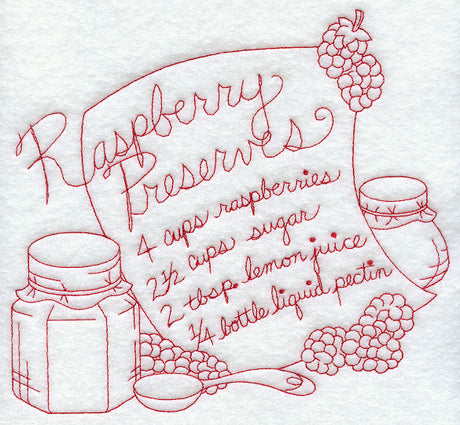 Raspberry
Preserves
4 cups raspberries
2½ cups sugar
2 tbsp. lemon juice
¼ bottle liquid pectin